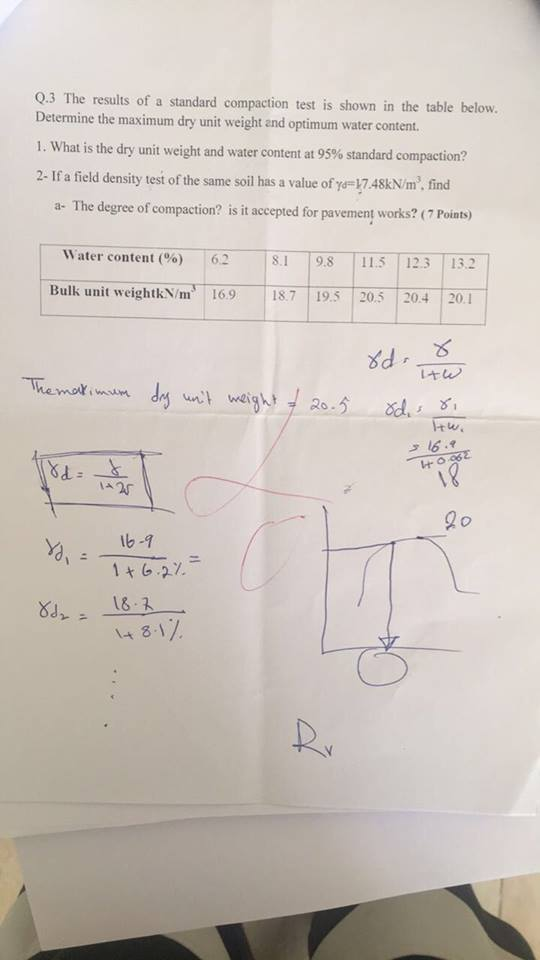 Q.3 The results of a standard compaction test is shown in the table below.
Determine the maximum dry unit weight and optimum water content.
1. What is the dry unit weight and water content at 95% standard compaction?
2- If a field density test of the same soil has a value of γd=17.48kN/m³, find
a- The degree of compaction? is it accepted for pavement works? ( 7 Points)
Water content (%) 6.2 8.1 9.8 11.5 12.3 13.2
Bulk unit weightkN/m³ 16.9 18.7 19.5 20.5 20.4 20.1
γd = γ / 1+w
The maximum dry unit weight = 20.5
γd₁ = γ₁ / 1+w₁
= 16.9 / 1+0.062
18
γd = γ / 1+w
γd₁ = 16.9 / 1+6.2% =
γd₂ = 18.7 / 1+8.1%
20
Rv